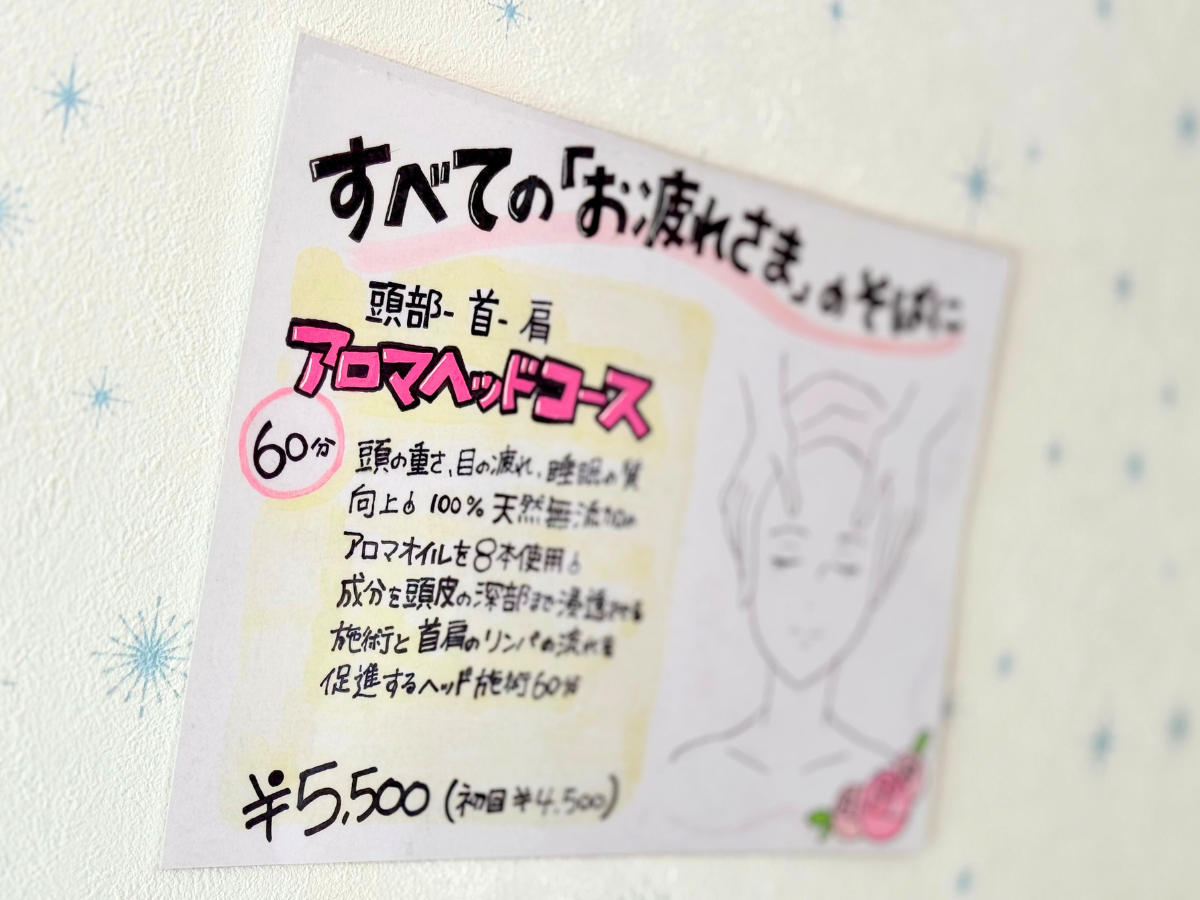 すべての「お疲れさま」のそばに
頭部-首-肩
アロマヘッドコース
60分
頭の重さ、目の疲れ、睡眠の質
向上♪ 100%天然無添加の
アロマオイルを8本使用♪
成分を頭皮の深部まで浸透させる
施術と首肩のリンパの流れを
促進するヘッド施術60分
¥5,500(初回¥4,500)